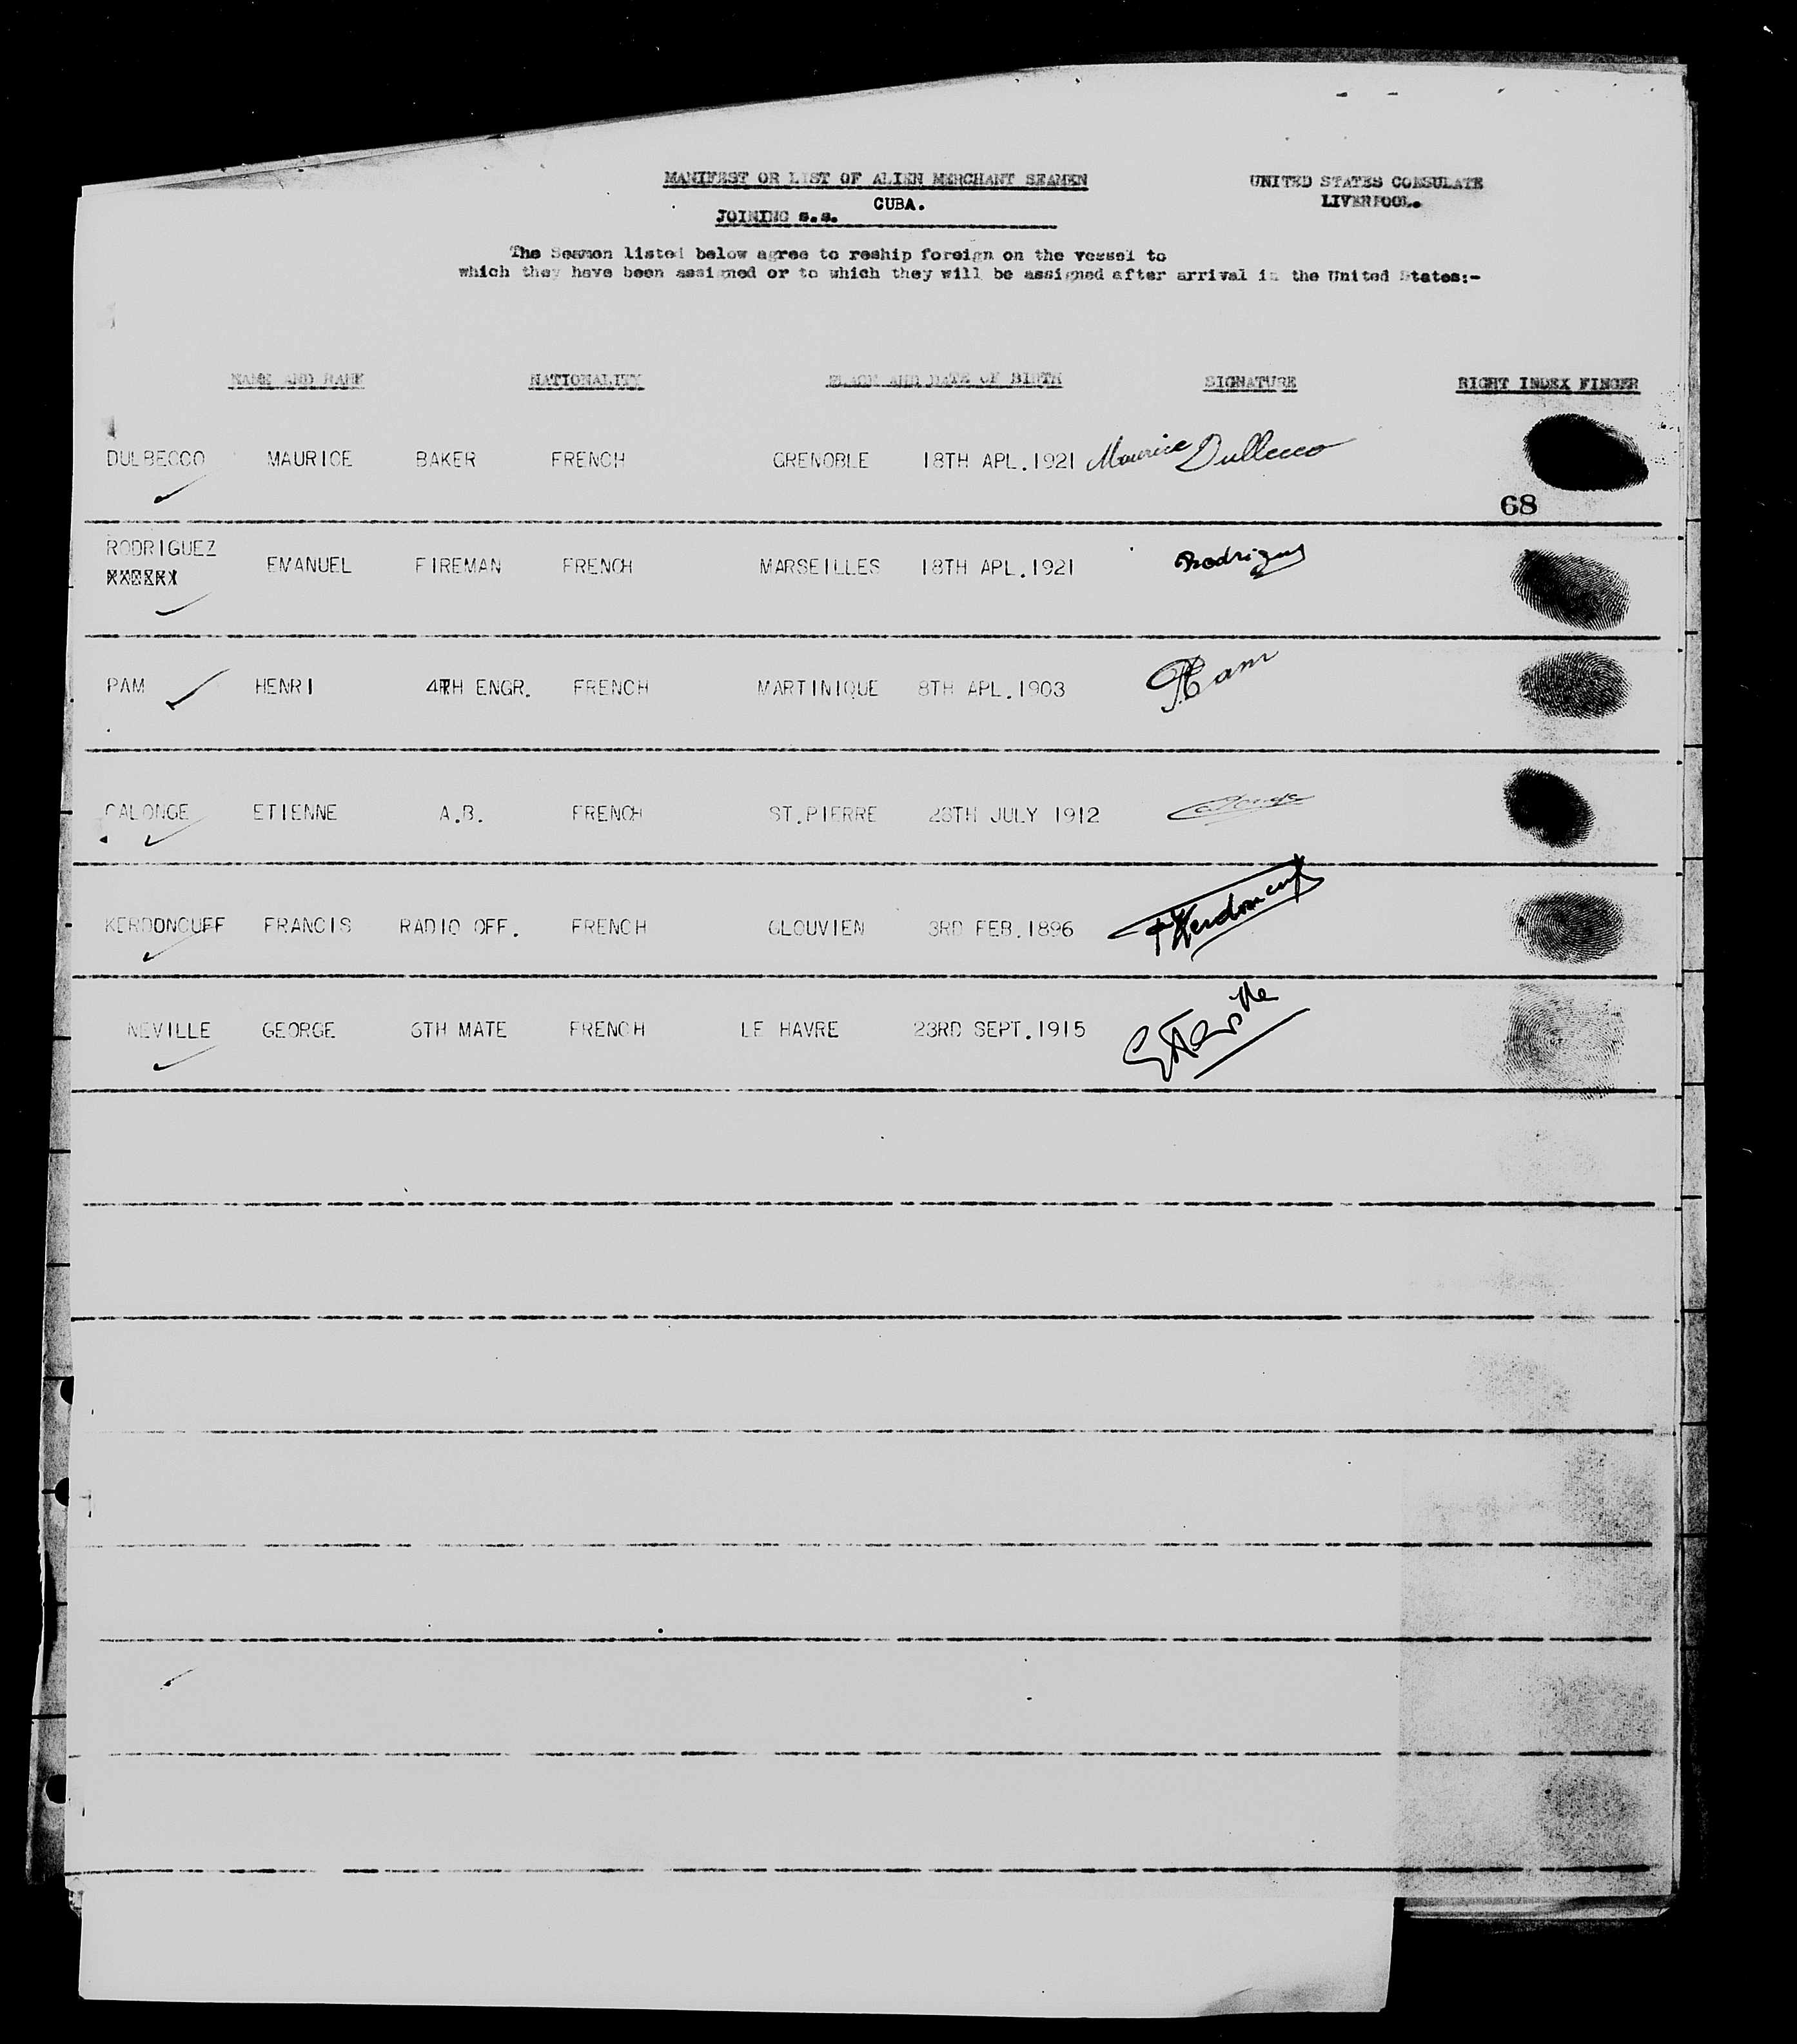 MANIFEST OR LIST OF ALIEN MERCHANT SEAMEN
UNITED STATES CONSULATE
LIVERPOOL.
CUBA.
JOINING s.s.
The Seamen listed below agree to reship foreign on the vessel to
which they have been assigned or to which they will be assigned after arrival in the United States:-
NAME AND RANK NATIONALITY PLACE AND DATE OF BIRTH SIGNATURE RIGHT INDEX FINGER
DULBECCO MAURICE BAKER FRENCH GRENOBLE 18TH APL.1921 Maurice Dulbecco
68
RODRIGUEZ
EMANUEL FIREMAN FRENCH MARSEILLES 18TH APL.1921 Rodriguez
PAM HENRI 4TH ENGR. FRENCH MARTINIQUE 8TH APL.1903 Pam
CALONGE ETIENNE A.B. FRENCH ST.PIERRE JULY 1912
KERDONCUFF FRANCIS RADIO OFF. FRENCH GLOUVIEN 3RD FEB.1896
NEVILLE GEORGE 6TH MATE FRENCH LE HAVRE 23RD SEPT.1915 G Neville